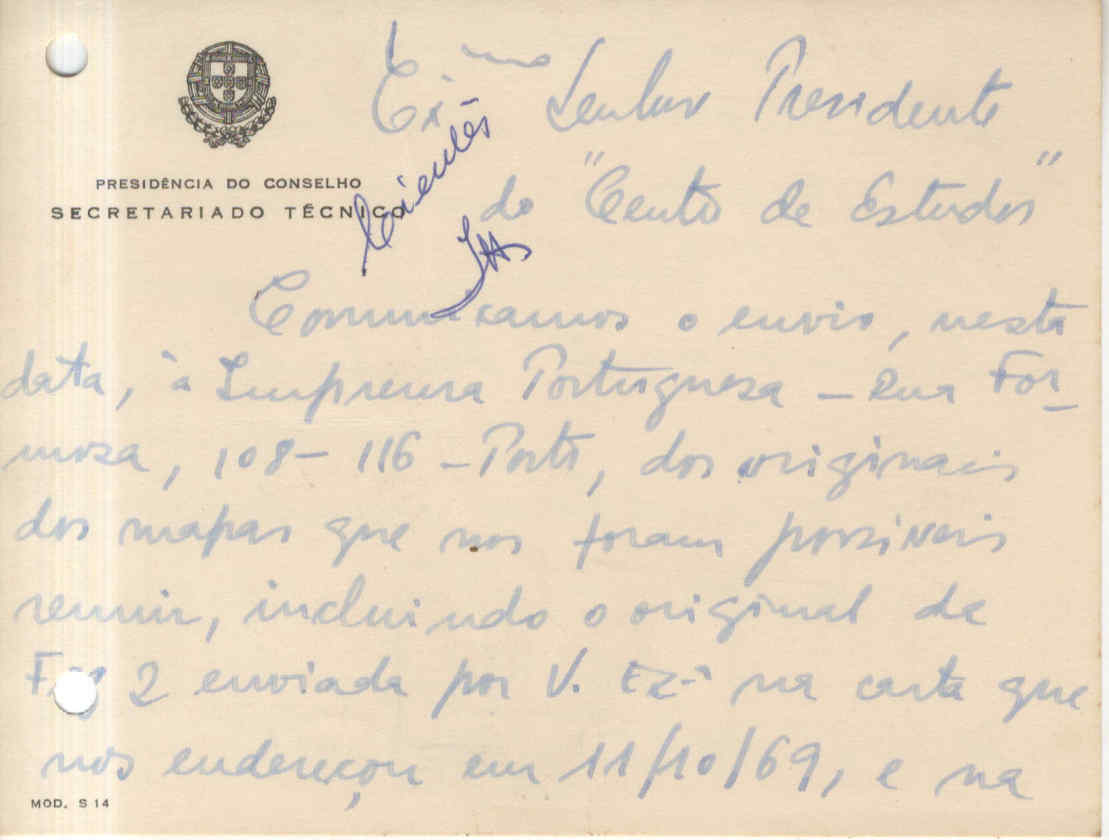 PRESIDÊNCIA DO CONSELHO
SECRETARIADO TÉCNICO
Exmo Senhor Presidente
do "Centro de Estudos"
Comunicamos o envio, nesta
data, à Imprensa Portuguesa – Rua For-
mosa, 108 – 116 – Porto, dos originais
dos mapas que nos foram possíveis
reunir, incluindo o original da
Fig 2 enviada por V. Exª na carta que
nos endereçou em 11/10/69, e na
MOD. S 14